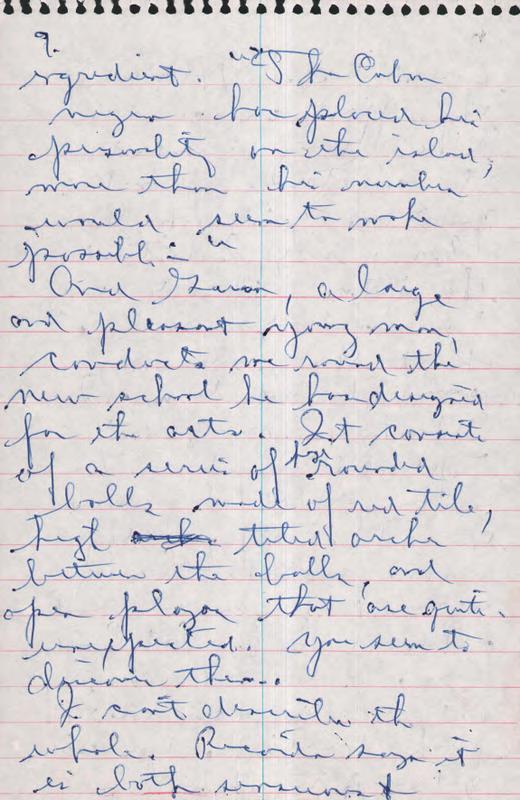 9.
ingredient. "The Cuban
negro has placed his
personality on the island,
more than his number
would seem to make
possible."
And, a large
and pleasant young man,
conducts me round the
new school he has designed
for the arts. It consists
of a series of rounded
balls made of red tile,
tiled arches
between the balls, and
open plazas that are quite
unexpected. You seem to
discover them.
I can't describe the
whole. says it
is both sensuous &